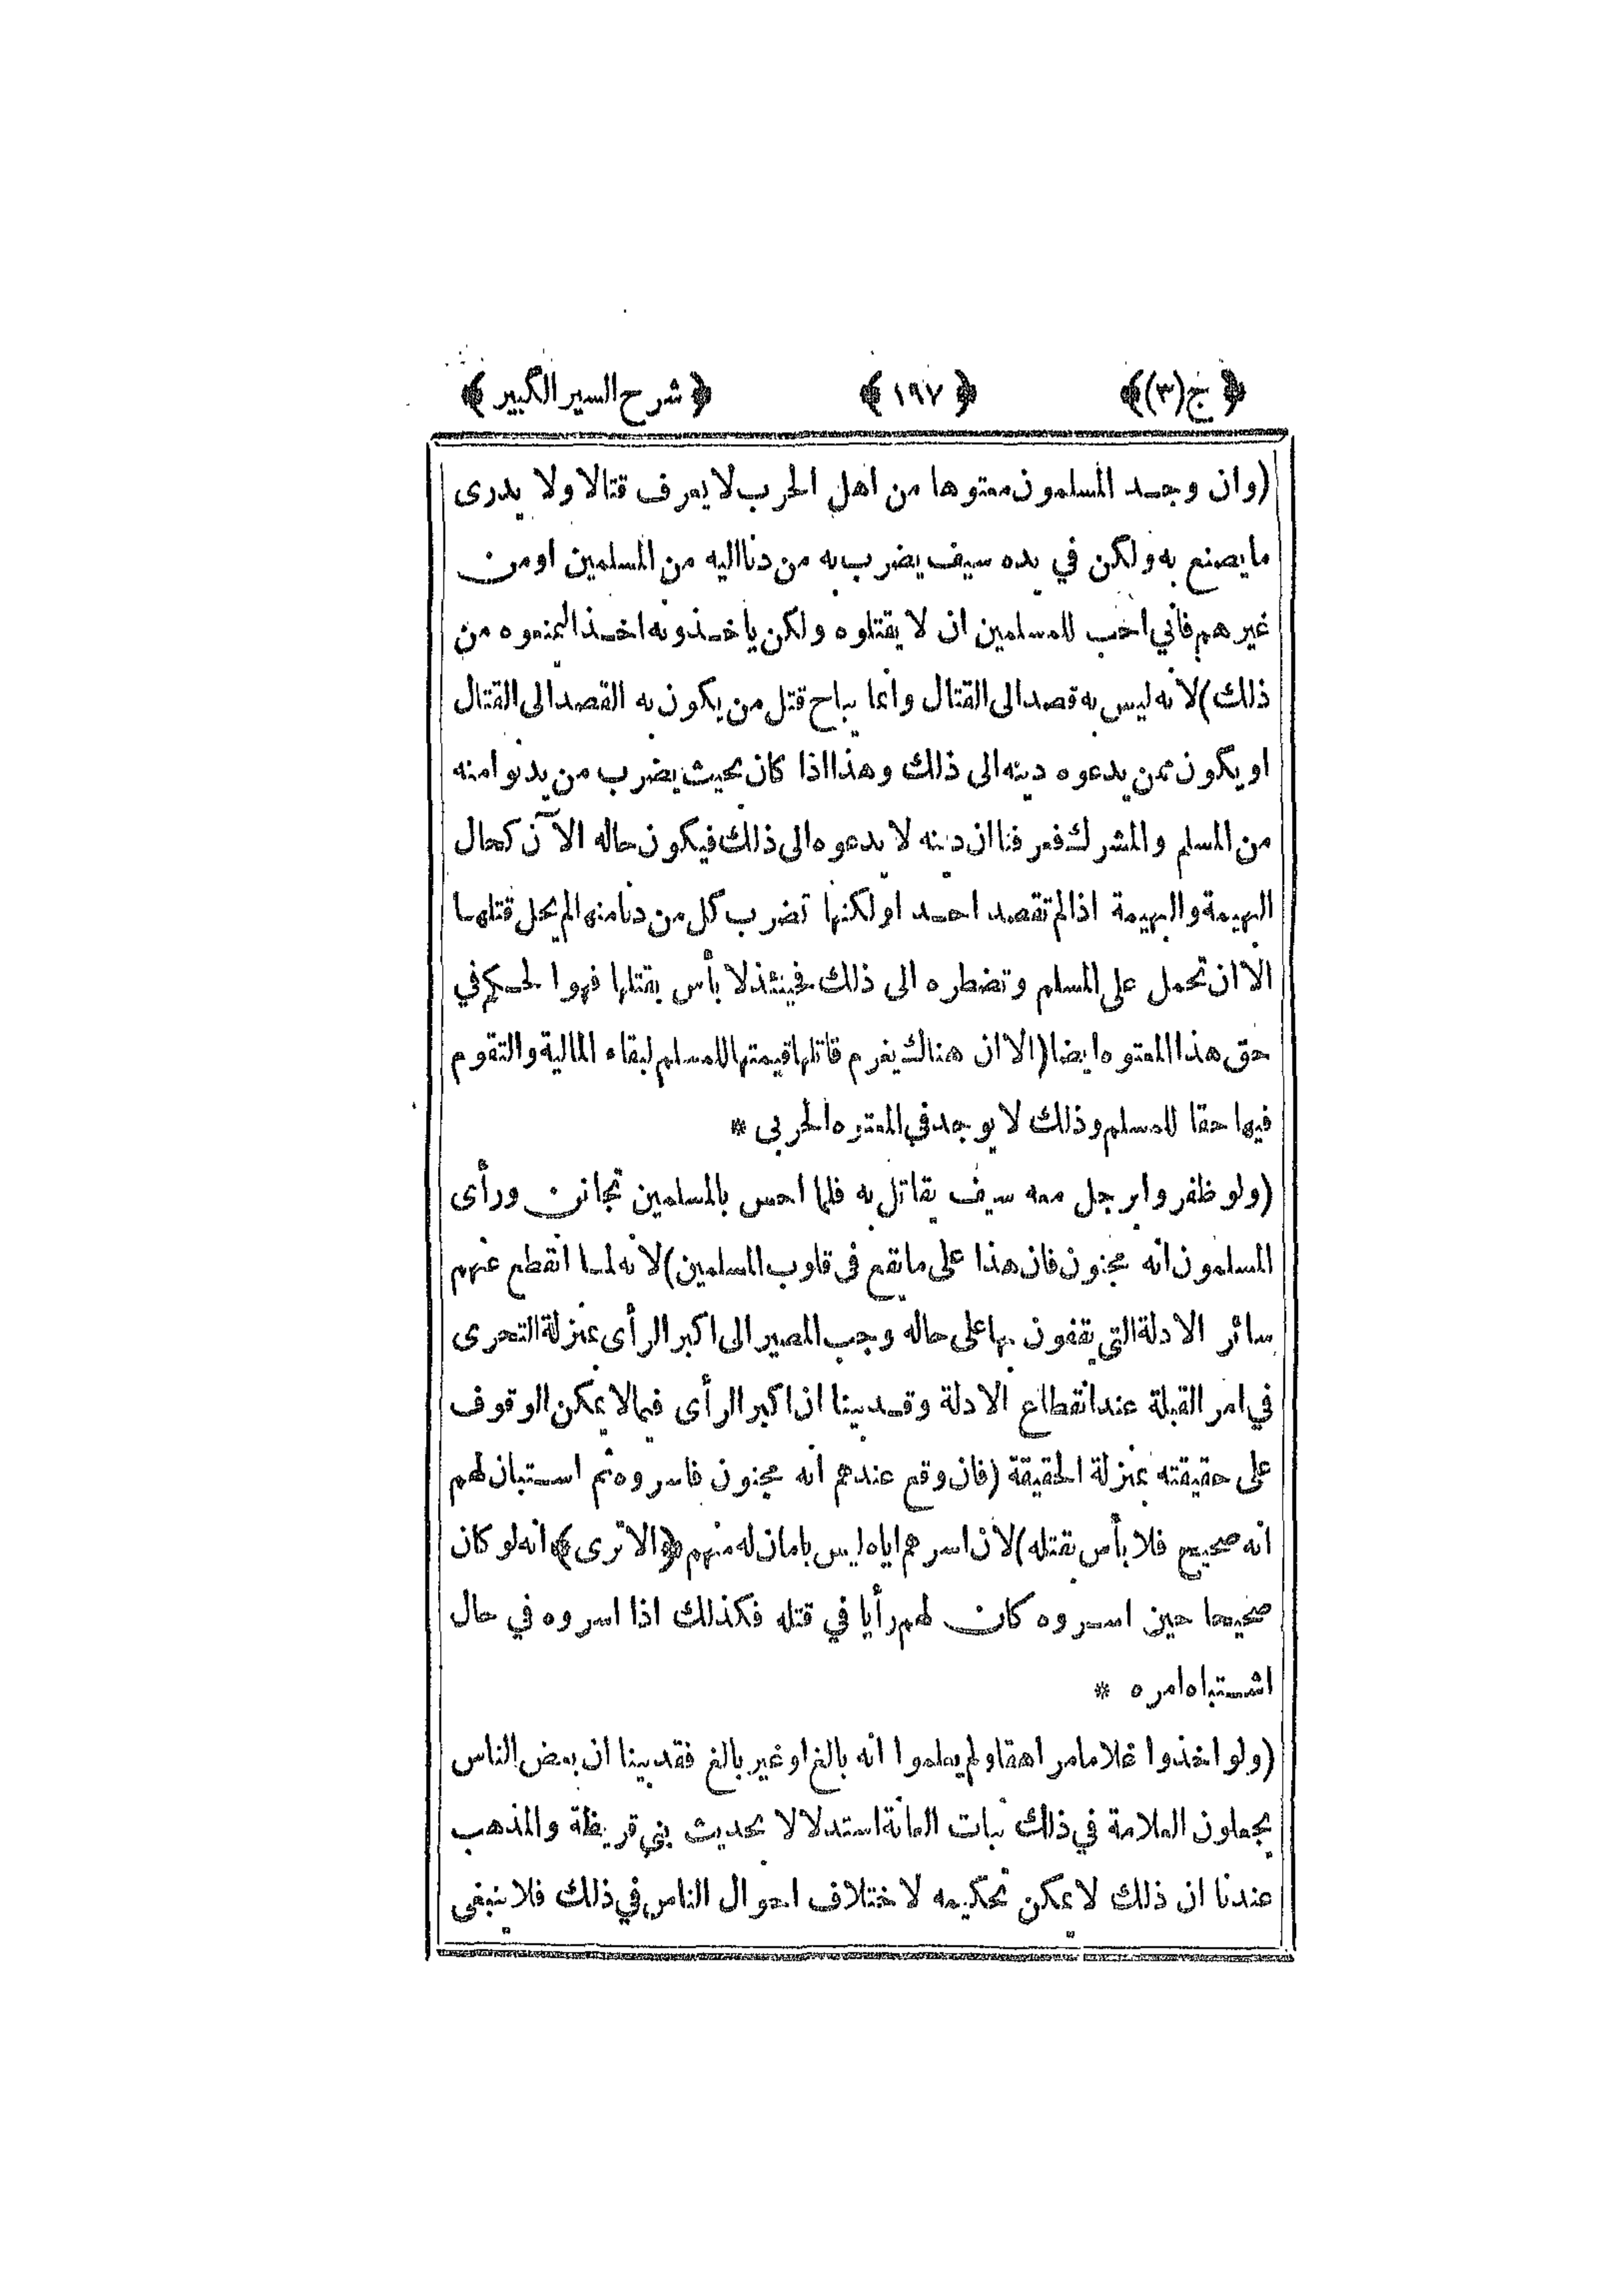 ﴿ ج(٣)﴾ ﴿ ١٩٧ ﴾ ﴿ شرح السير الكبير ﴾
(وان وجد المسلمون معتوها من اهل الحرب لا يعرف قتالا ولا يدرى
ما يصنع به ولكن في يده سيف يضرب به من دنا اليه من المسلمين او من
غيرهم فاني احب للمسلمين ان لا يقتلوه ولكن ياخذونه اخذا ليمنعوه من
ذلك) لانه ليس به قصد الى القتال وانما يباح قتل من يكون به القصد الى القتال
او يكون ممن يدعوه دينه الى ذلك وهذا اذا كان بحيث يضرب من يدنوا منه
من المسلم والمشرك فعرفنا ان دينه لا يدعوه الى ذلك فيكون حاله الآن كحال
البهيمة والبهيمة اذا لم تقصد احدا ولكنها تضرب كل من دنا منها لم يحل قتلها
الا ان تحمل على المسلم وتضطره الى ذلك فحينئذ لا بأس بقتلها فهو الحكم في
حق هذا المعتوه ايضا (الا ان هناك يغرم قاتلها قيمتها للمسلم لبقاء المالية والتقوم
فيها حقا للمسلم وذلك لا يوجد في المعتوه الحربى *
(ولو ظفروا برجل معه سيف يقاتل به فلما احس بالمسلمين تجانن ورأى
المسلمون انه مجنون فان هذا على ما تقع فى قلوب المسلمين) لانه لما انقطع عنهم
سائر الادلة التي يقفون بها على حاله وجب المصير الى اكبر الرأى بمنزلة التحرى
في امر القبلة عند انقطاع الادلة وقد بينا ان اكبر الرأى فيما لا يمكن الوقوف
على حقيقته بمنزلة الحقيقة (فان وقع عندهم انه مجنون فاسروه ثم استبان لهم
انه صحيح فلا بأس بقتله) لان اسرهم اياه ليس بامان له منهم ﴿الا ترى﴾ انه لو كان
صحيحا حين اسروه كان لهم رأيا في قتله فكذلك اذا اسروه في حال
اشتباه امره *
(ولو اخذوا غلاما مراهقا ولم يعلموا انه بالغ او غير بالغ فقد بينا ان بعض الناس
يجعلون العلامة في ذلك نبات العانة استدلالا بحديث بني قريظة والمذهب
عندنا ان ذلك لا يمكن تحكيمه لاختلاف احوال الناس في ذلك فلا ينبغى